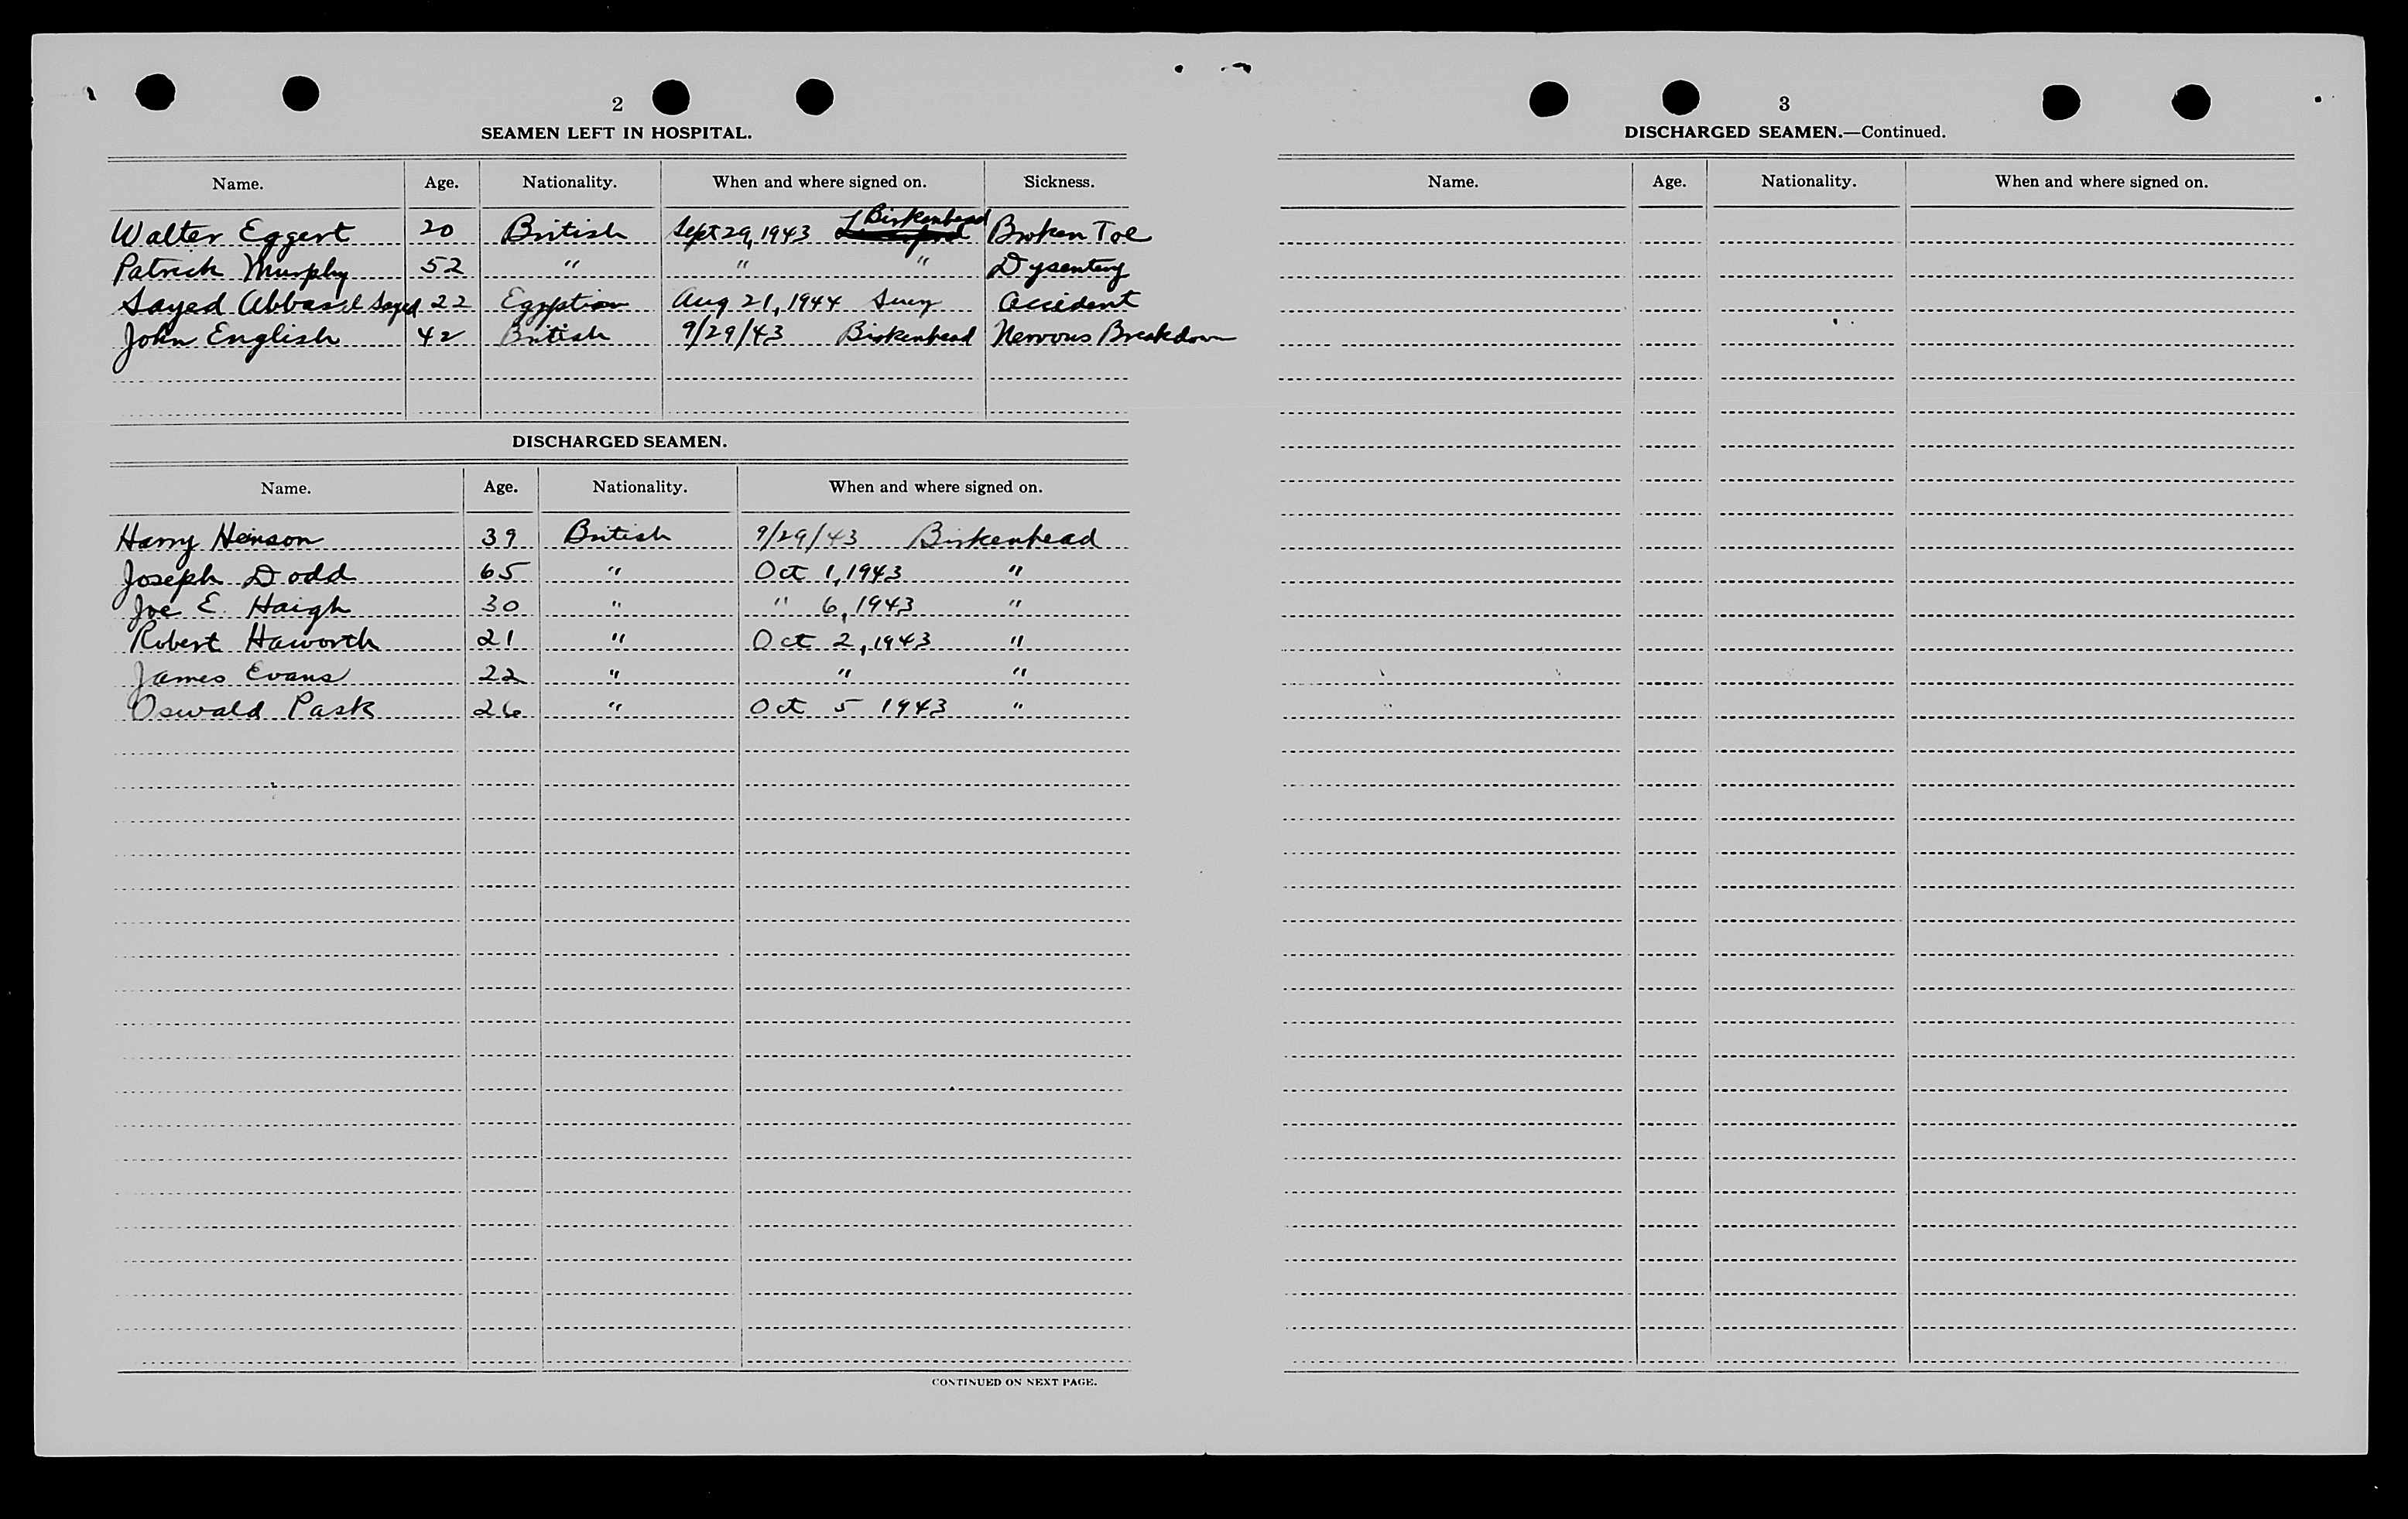 2
SEAMEN LEFT IN HOSPITAL.
Name. Age. Nationality. When and where signed on. Sickness.
Walter Eggert 20 British Sept 29, 1943 Birkenhead Broken Toe
Patrick Murphy 52 " " " Dysentery
Sayed Abbas el Sayed 22 Egyptian Aug 21, 1944 Accident
John English 42 British 9/29/43 Birkenhead Nervous Breakdown
DISCHARGED SEAMEN.
Name. Age. Nationality. When and where signed on.
Harry 39 British 9/29/43 Birkenhead
Joseph Dodd 65 " Oct 1, 1943 "
Joe E. Haigh 30 " " 6, 1943 "
Robert Haworth 21 " Oct 2, 1943 "
James Evans 22 " " "
Oswald Pask 26 " Oct 5 1943 "
CONTINUED ON NEXT PAGE.
3
DISCHARGED SEAMEN.—Continued.
Name. Age. Nationality. When and where signed on.